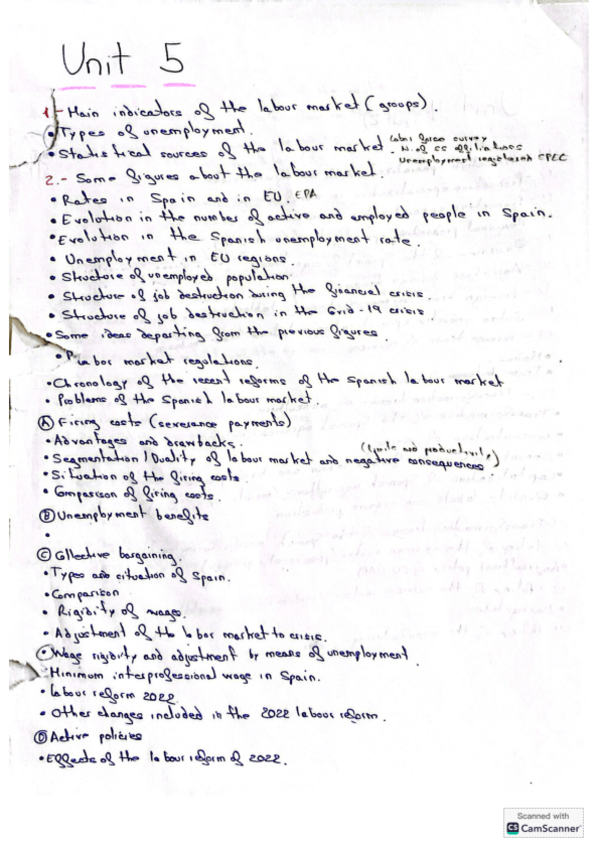 Unit 5
1.- Main indicators of the labour market (groups).
• Types of unemployment.
• Statistical sources of the labour market
Labor force survey
- N. of SS affiliations
Unemployment registered
2.- Some figures about the labour market.
• Rates in Spain and in EU. EPA
• Evolution in the number of active and employed people in Spain.
• Evolution in the Spanish unemployment rate.
• Unemployment in EU regions.
• Structure of unemployed population.
• Structure of job destruction during the financial crisis.
• Structure of job destruction in the Covid-19 crisis.
• Some ideas departing from the previous figures.
• Labor market regulations.
• Chronology of the recent reforms of the Spanish labour market
• Problems of the Spanish labour market.
Ⓐ Firing costs (severance payments)
• Advantages and drawbacks.
• Segmentation / Duality of labour market and negative consequences
and productivity)
• Situation of the firing costs.
• Comparison of firing costs.
Ⓑ Unemployment benefits
•
Ⓒ Collective bargaining.
• Types and situation of Spain.
• Comparison
• Rigidity of wages.
• Adjustment of the labor market to crisis.
• Wage rigidity and adjustment by means of unemployment
• Minimum interprofessional wage in Spain.
• Labour reform 2022
• Other changes included in the 2022 labour reform.
Ⓓ Active policies
• Effects of the labour reform of 2022.
Scanned with
CS CamScanner